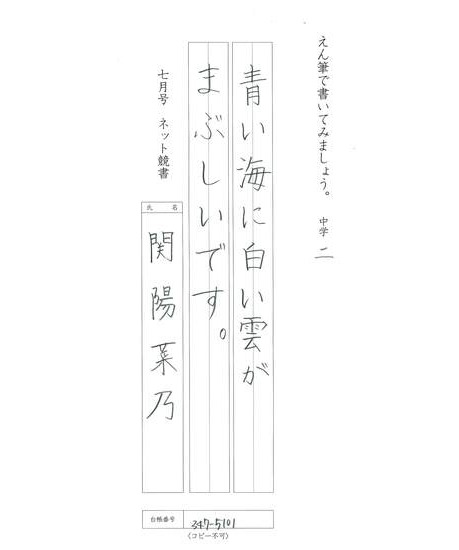 えん筆で書いてみましょう。 中学 二
青い海に白い雲が
まぶしいです。
七月号 ネット競書
氏名
関陽菜乃
台帳番号 347-5101
(コピー不可)